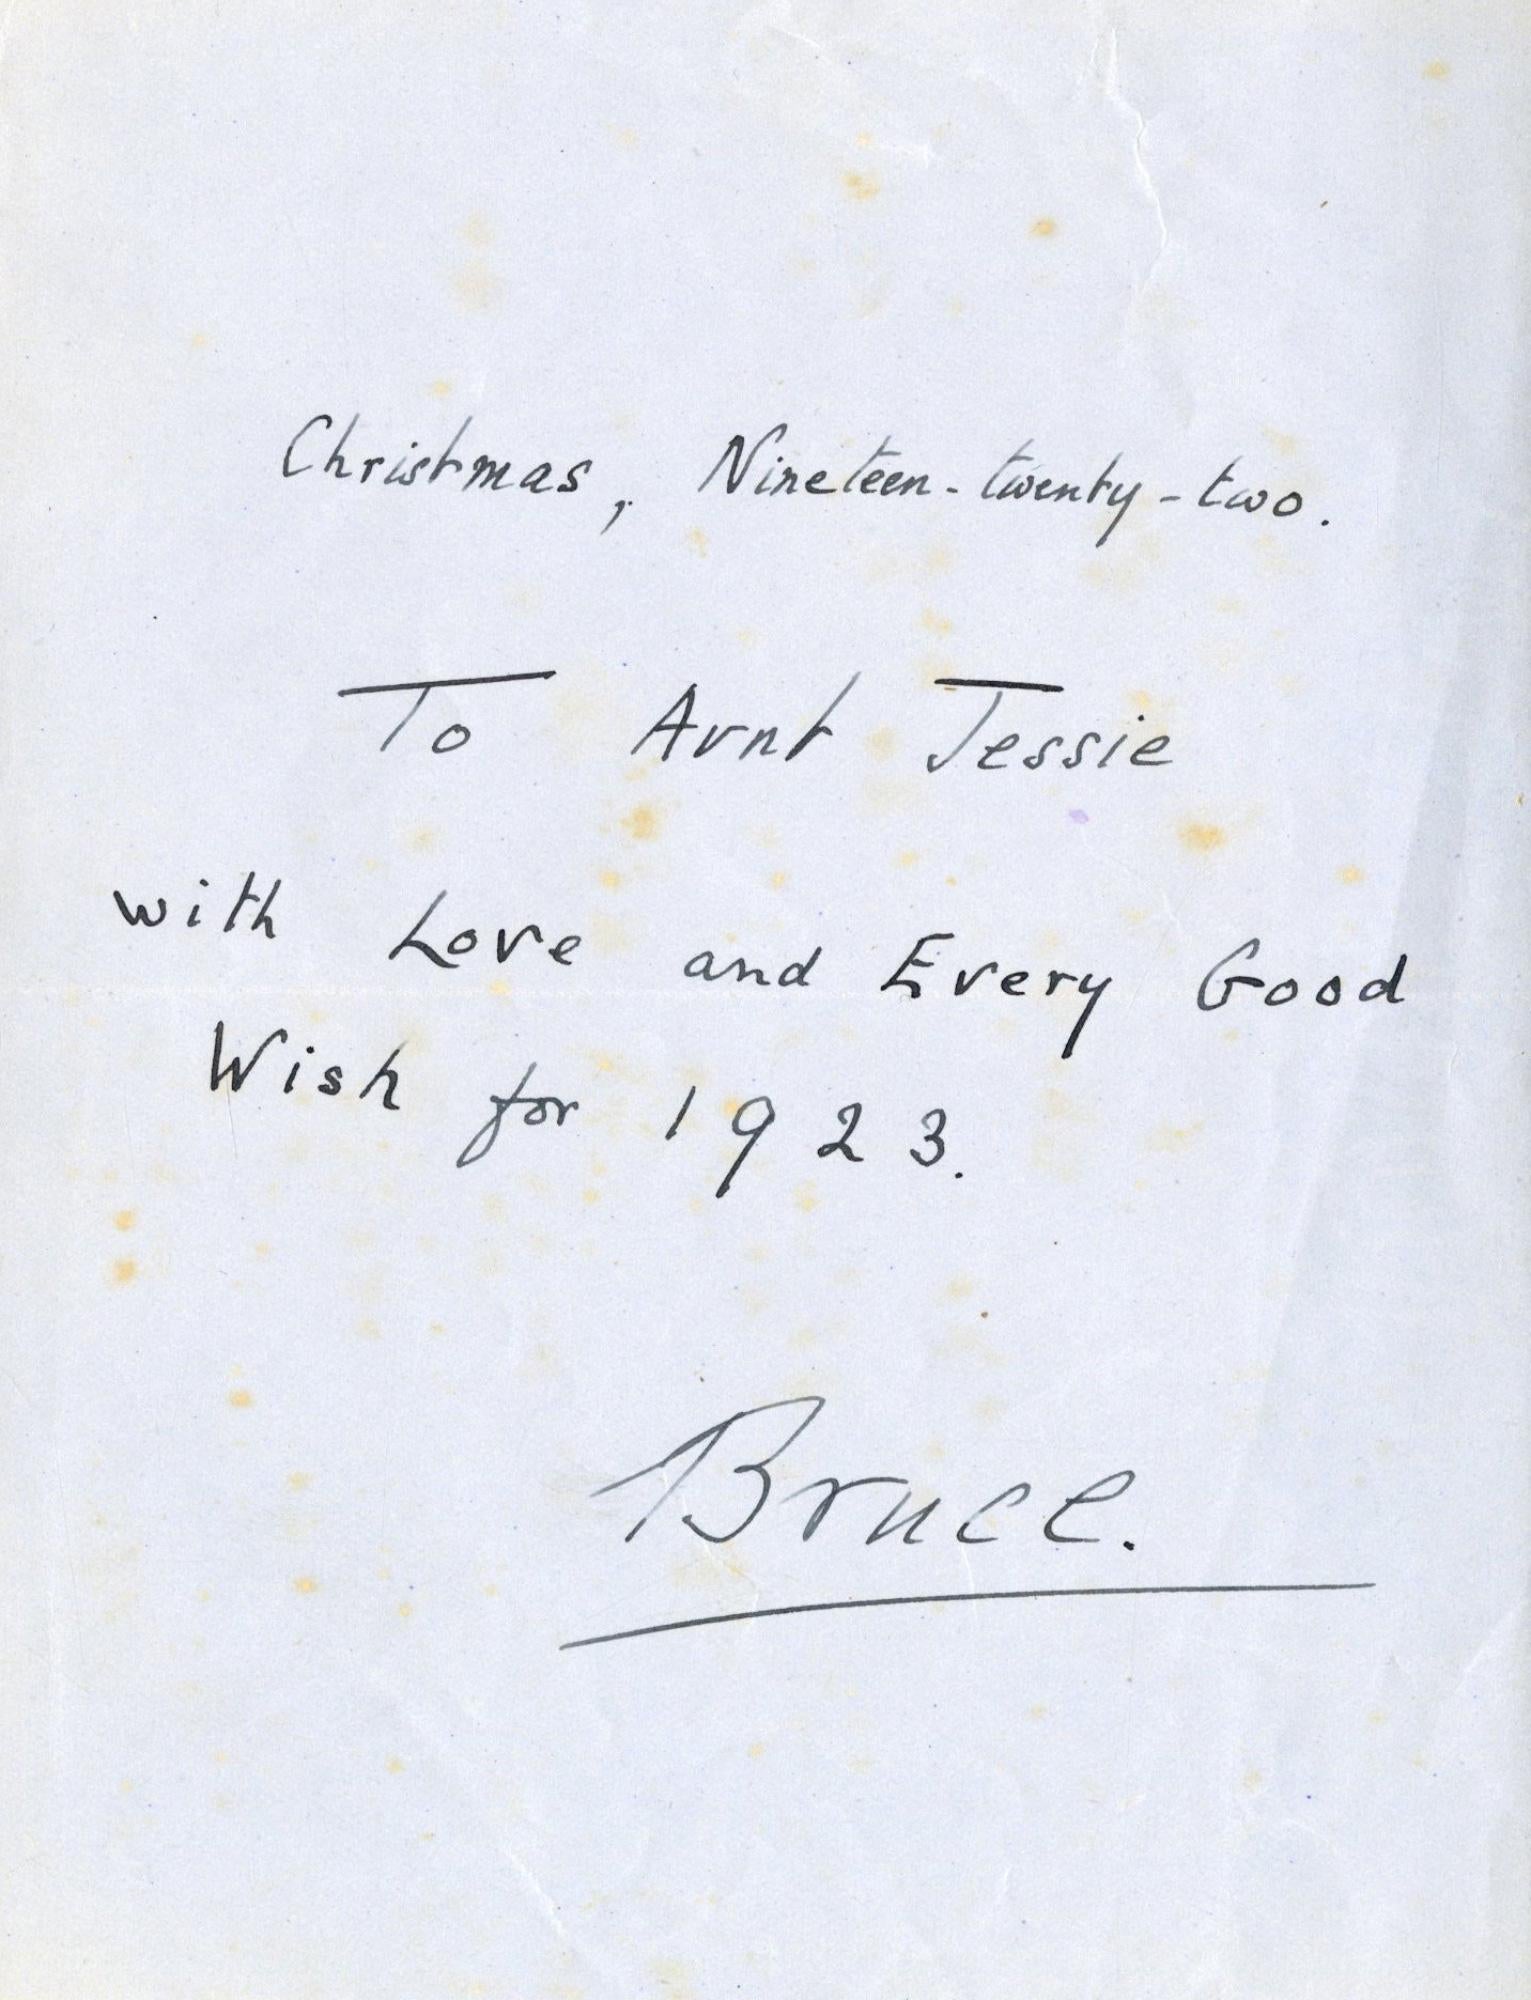 Christmas, Nineteen-twenty-two.
To Aunt Jessie
with Love and Every Good
Wish for 1923.
Bruce.